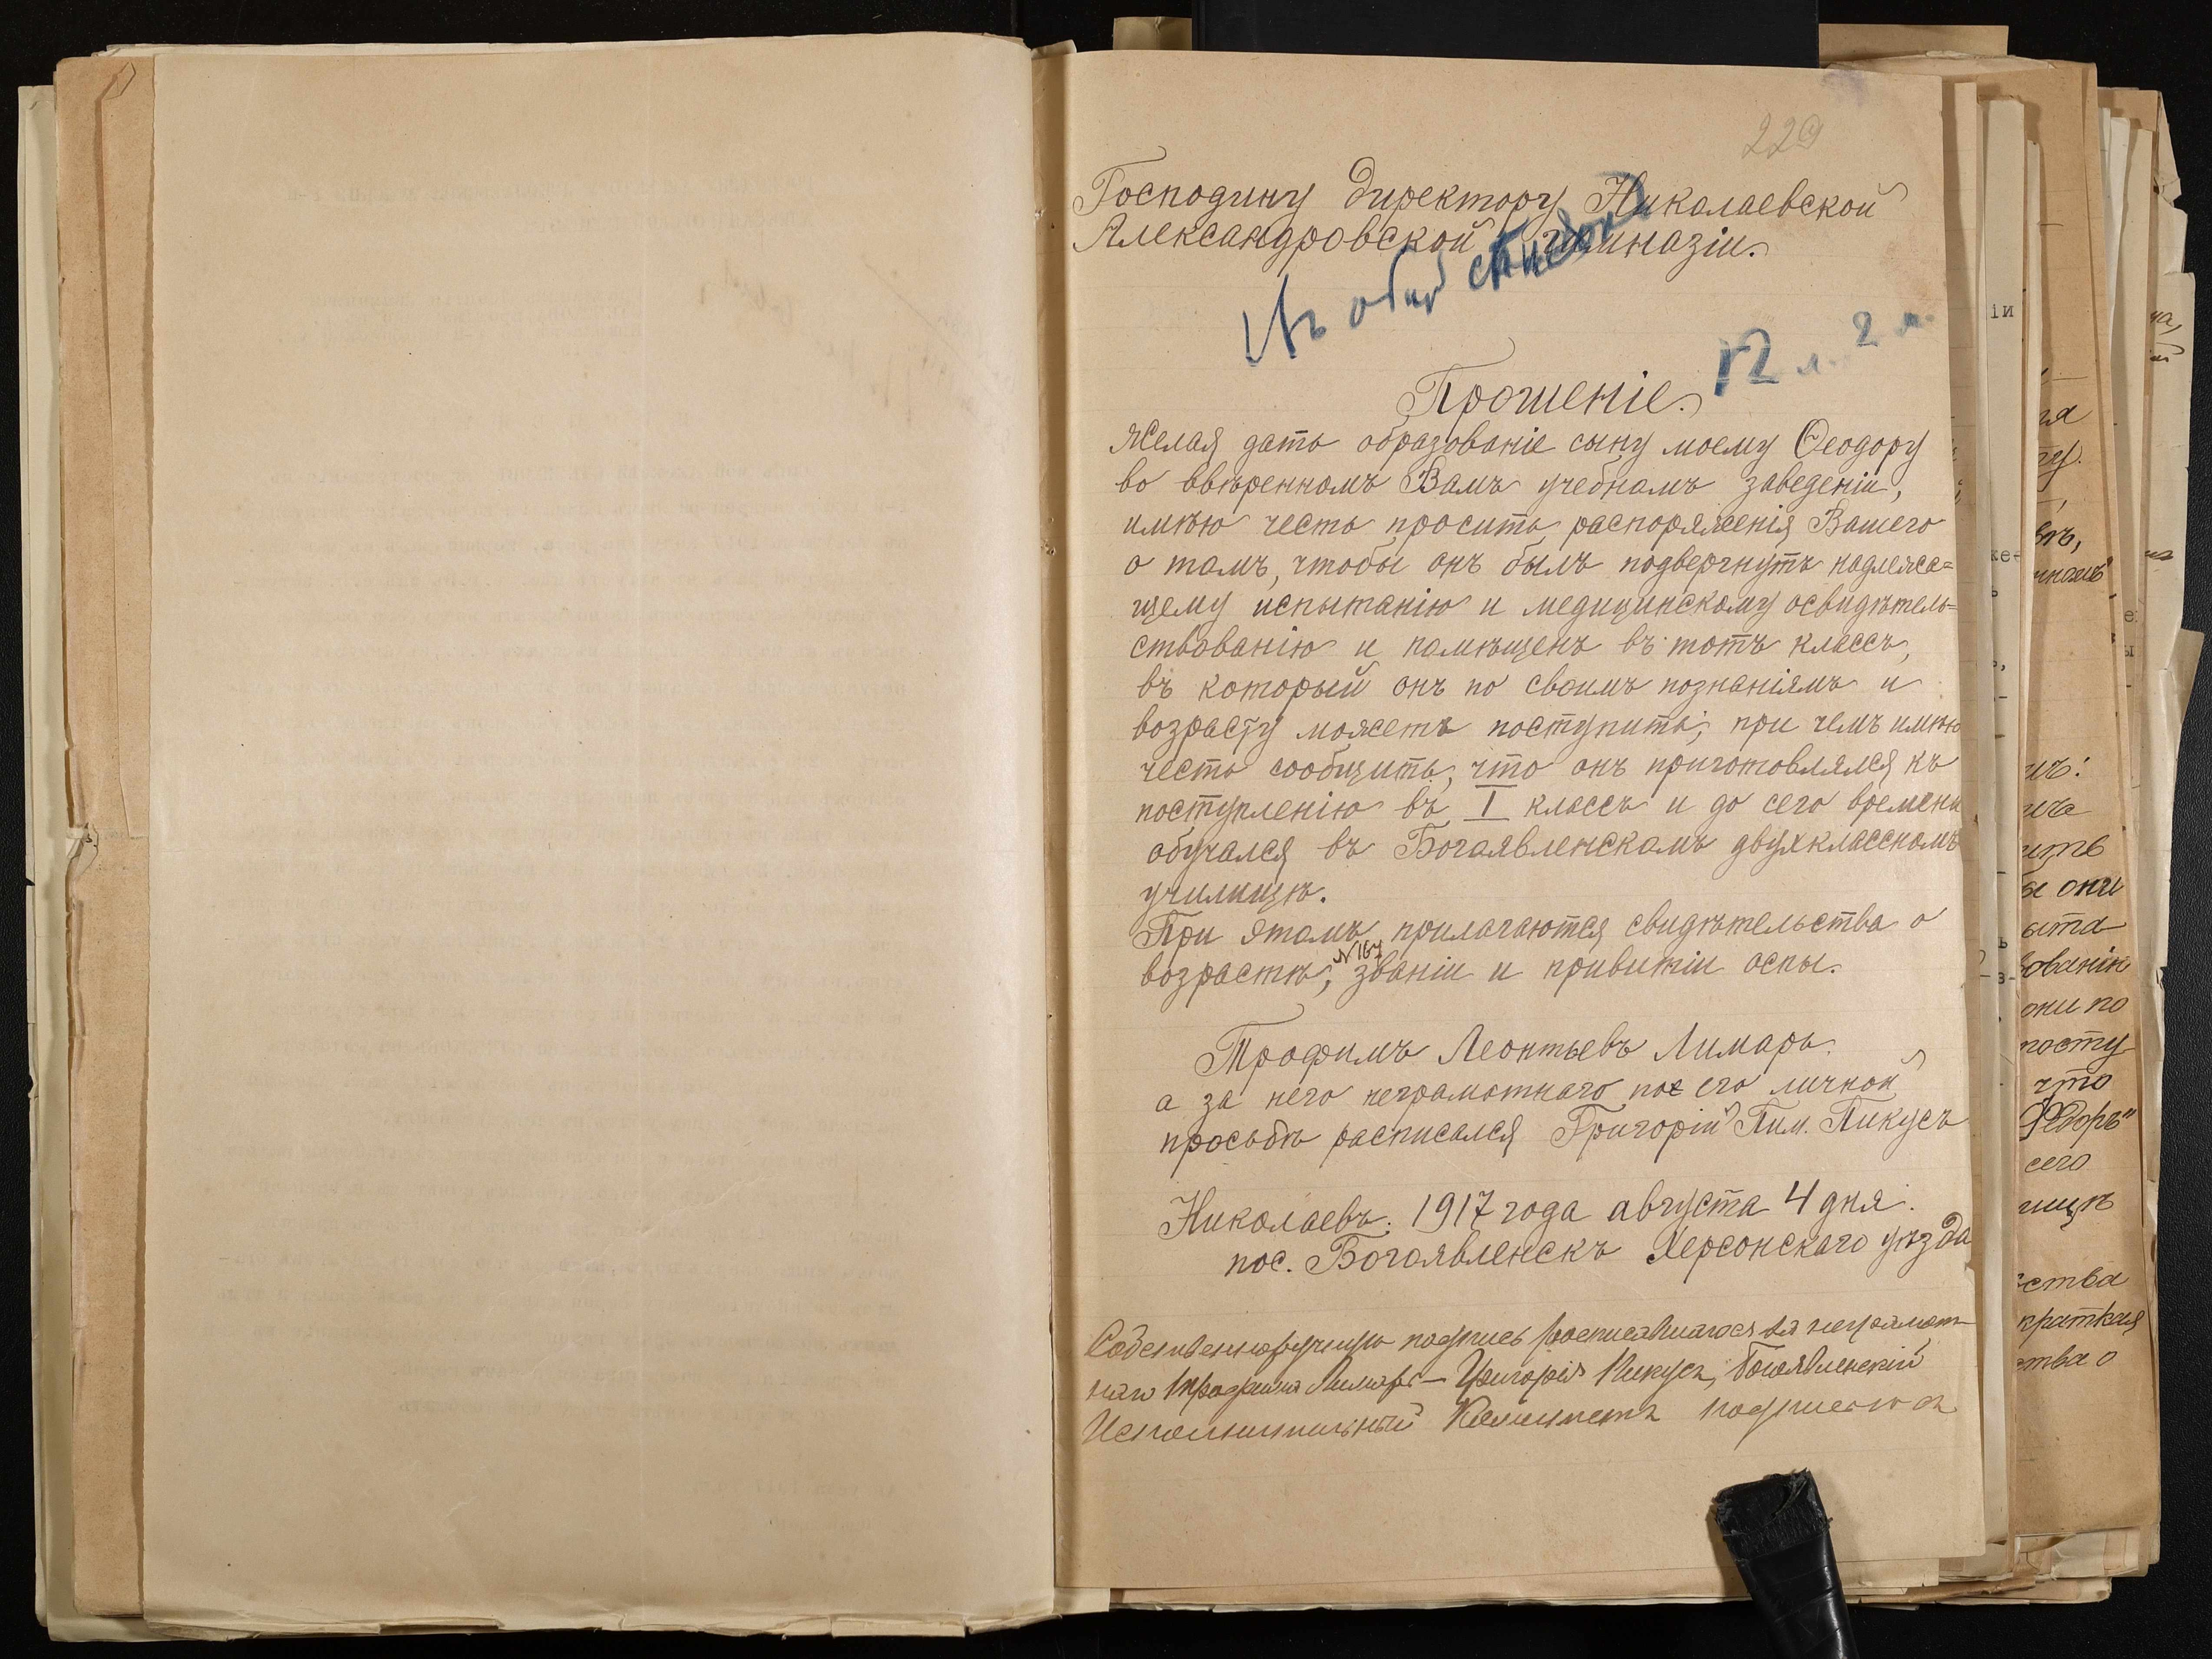 229
Господину Директору Николаевской
Александровской гимназіи.
Въ общ список
12 л. 2 м.
Прошеніе.
Желая дать образованіе сыну моему Ѳеодору
во ввѣренномъ Вамъ учебномъ заведеніи,
имѣю честь просить распоряженія Вашего
о томъ, чтобы онъ былъ подвергнутъ надлежа=
щему испытанію и медицинскому освидѣтель=
ствованію и помѣщенъ въ тотъ классъ,
въ который онъ по своимъ познаніямъ и
возрасту можетъ поступить; при чемъ имѣю
честь сообщить, что онъ приготовлялся къ
поступленію въ I классъ и до сего времени
обучался въ Богоявленскомъ двухклассномъ
училищѣ.
При этомъ прилагаются свидѣтельства о
N 167
возрастѣ, званіи и привитіи оспы.
Трофимъ Леонтьевъ Лимарь.
а за него неграмотнаго по его личной
просьбѣ расписался Григорій Пим. Пикусъ
Николаевъ. 1917 года августа 4 дня.
пос. Богоявленскъ Херсонскаго уѣзда
Собственноручную подпись росписавшагося за неграмот-
наго Трофима Лимаря – Григорія Пикуса, Богоявленскій
Исполнительный Комитетъ